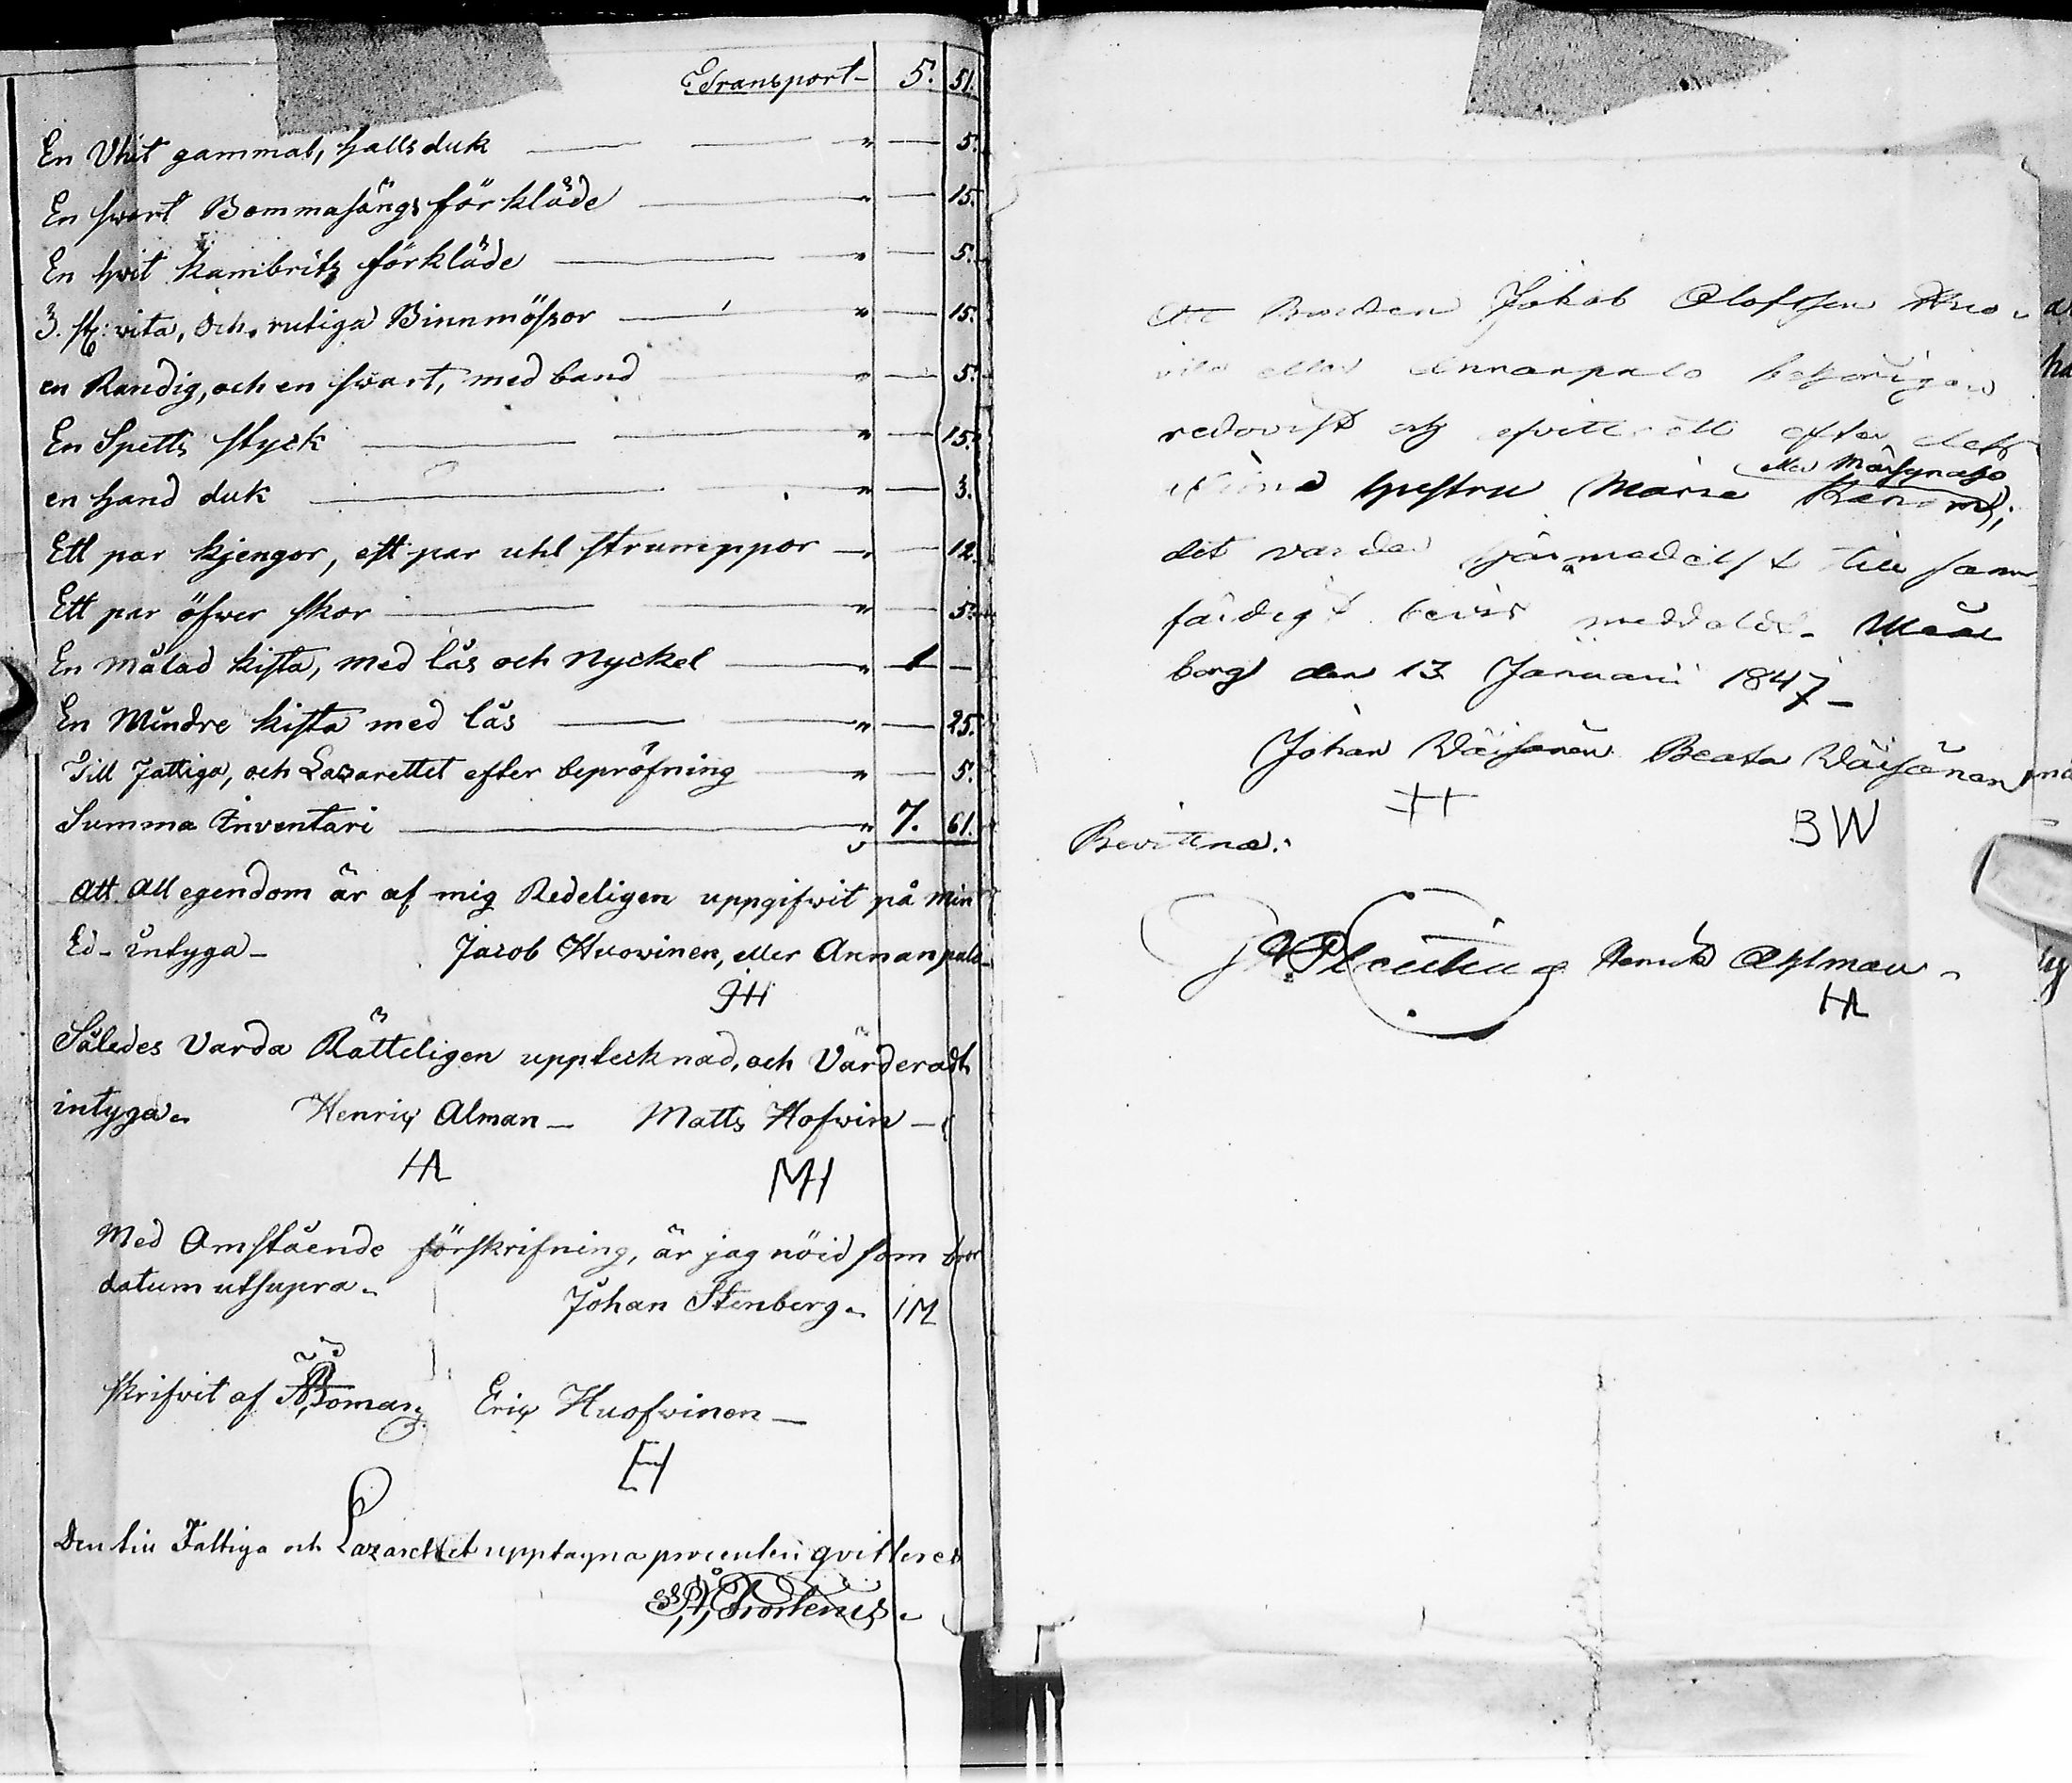 Transport 5. 51.
En Vhit gammal, hallsduk " — 5.
En swart Bommasängs förkläde " — 15.
En hwit kambrits förkläde " — 5.
3. st: vita, och rutiga Binnmössor " — 15.
en Randig, och en swart, med band " — 5.
En Spetts styck " — 15.
en hand duk " — 3.
Ett par kjengor, ett par uhl strumppor " — 12.
Ett par öfwer skor " — 5.
En målad kista, med lås och Nyckel " 1 —
En Mindre kista med lås " — 25.
Till Fattiga, och Lazarettet efter bepröfning " — 5.
Summa Inventari " 7. 61.
Att all egendom är af mig Redeligen uppgifwit på min
Ed - intyga - Jacob Huowinen, eller Annanpalo
JH
Således Varda Rätteligen upptecknad, och Värderadt
intyga - Henrik Alman - Matts Hofwin -
HA MH
Med Omstående förskrifning, är jag nöid som bror
datum utsupra - Johan Stenberg - IM
skrifvit af Boman Eric Huofwinen -
EH
Den till Fattiga och Lazarettet upptagna procenten qvitteras
Att Bonden Jakob Olofsson Huo-
vinen eller Annanpalo behörigen
redovist och qvitterat efter dess
eller Märsynaho
hustru Maria
det varder härmedelst till sann-
färdigt bevis meddeldt - Uleå
borg den 13 Januari 1847 -
Johan Väisänen Beata Väisänen
BW
Bevittna:
Henrik Ahlman -
HA